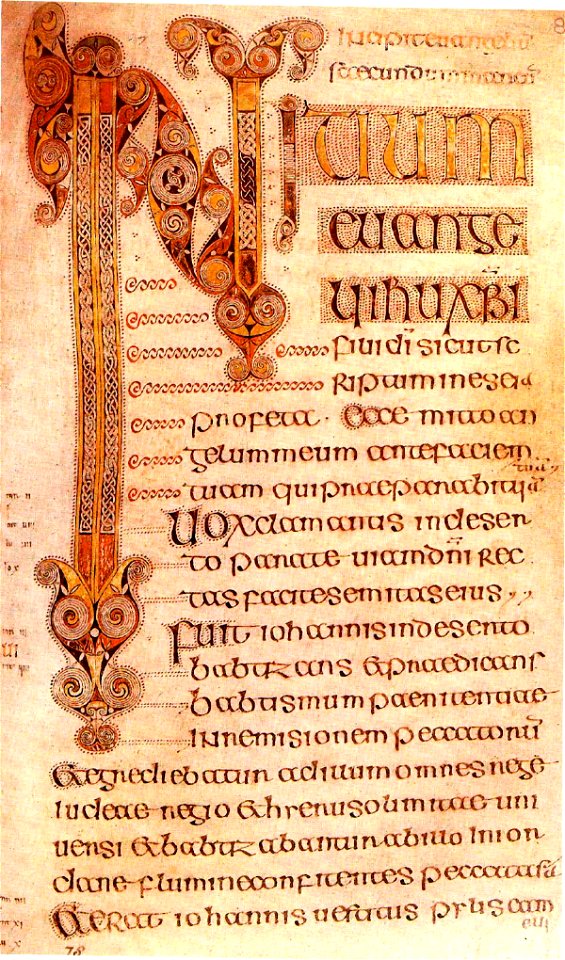 Incipit euangeliū
secundum marcū
INITIUM
euange
lii ihu xp̄i
filii dī sicut sc
riptum in eseia
profeta · Ecce mitto an
gelum meum ante faciem
tuam qui praeparabit uiā
tuā
Uox clamantis in deser
to parate uiam dn̄i rec
tas facite semitas eius ,,
Fuit iohannis in deserto
babtizans & praedicans
babtismum paenitentiae
in remisionem peccatorū
& egrediebatur ad illum omnes rege
iudeae regio & hierusolimitae uni
uersi & babtizabantur ab illo in ior
dane flumine confitentes peccata sā
& erat iohannis uestitus pylis cam
eli